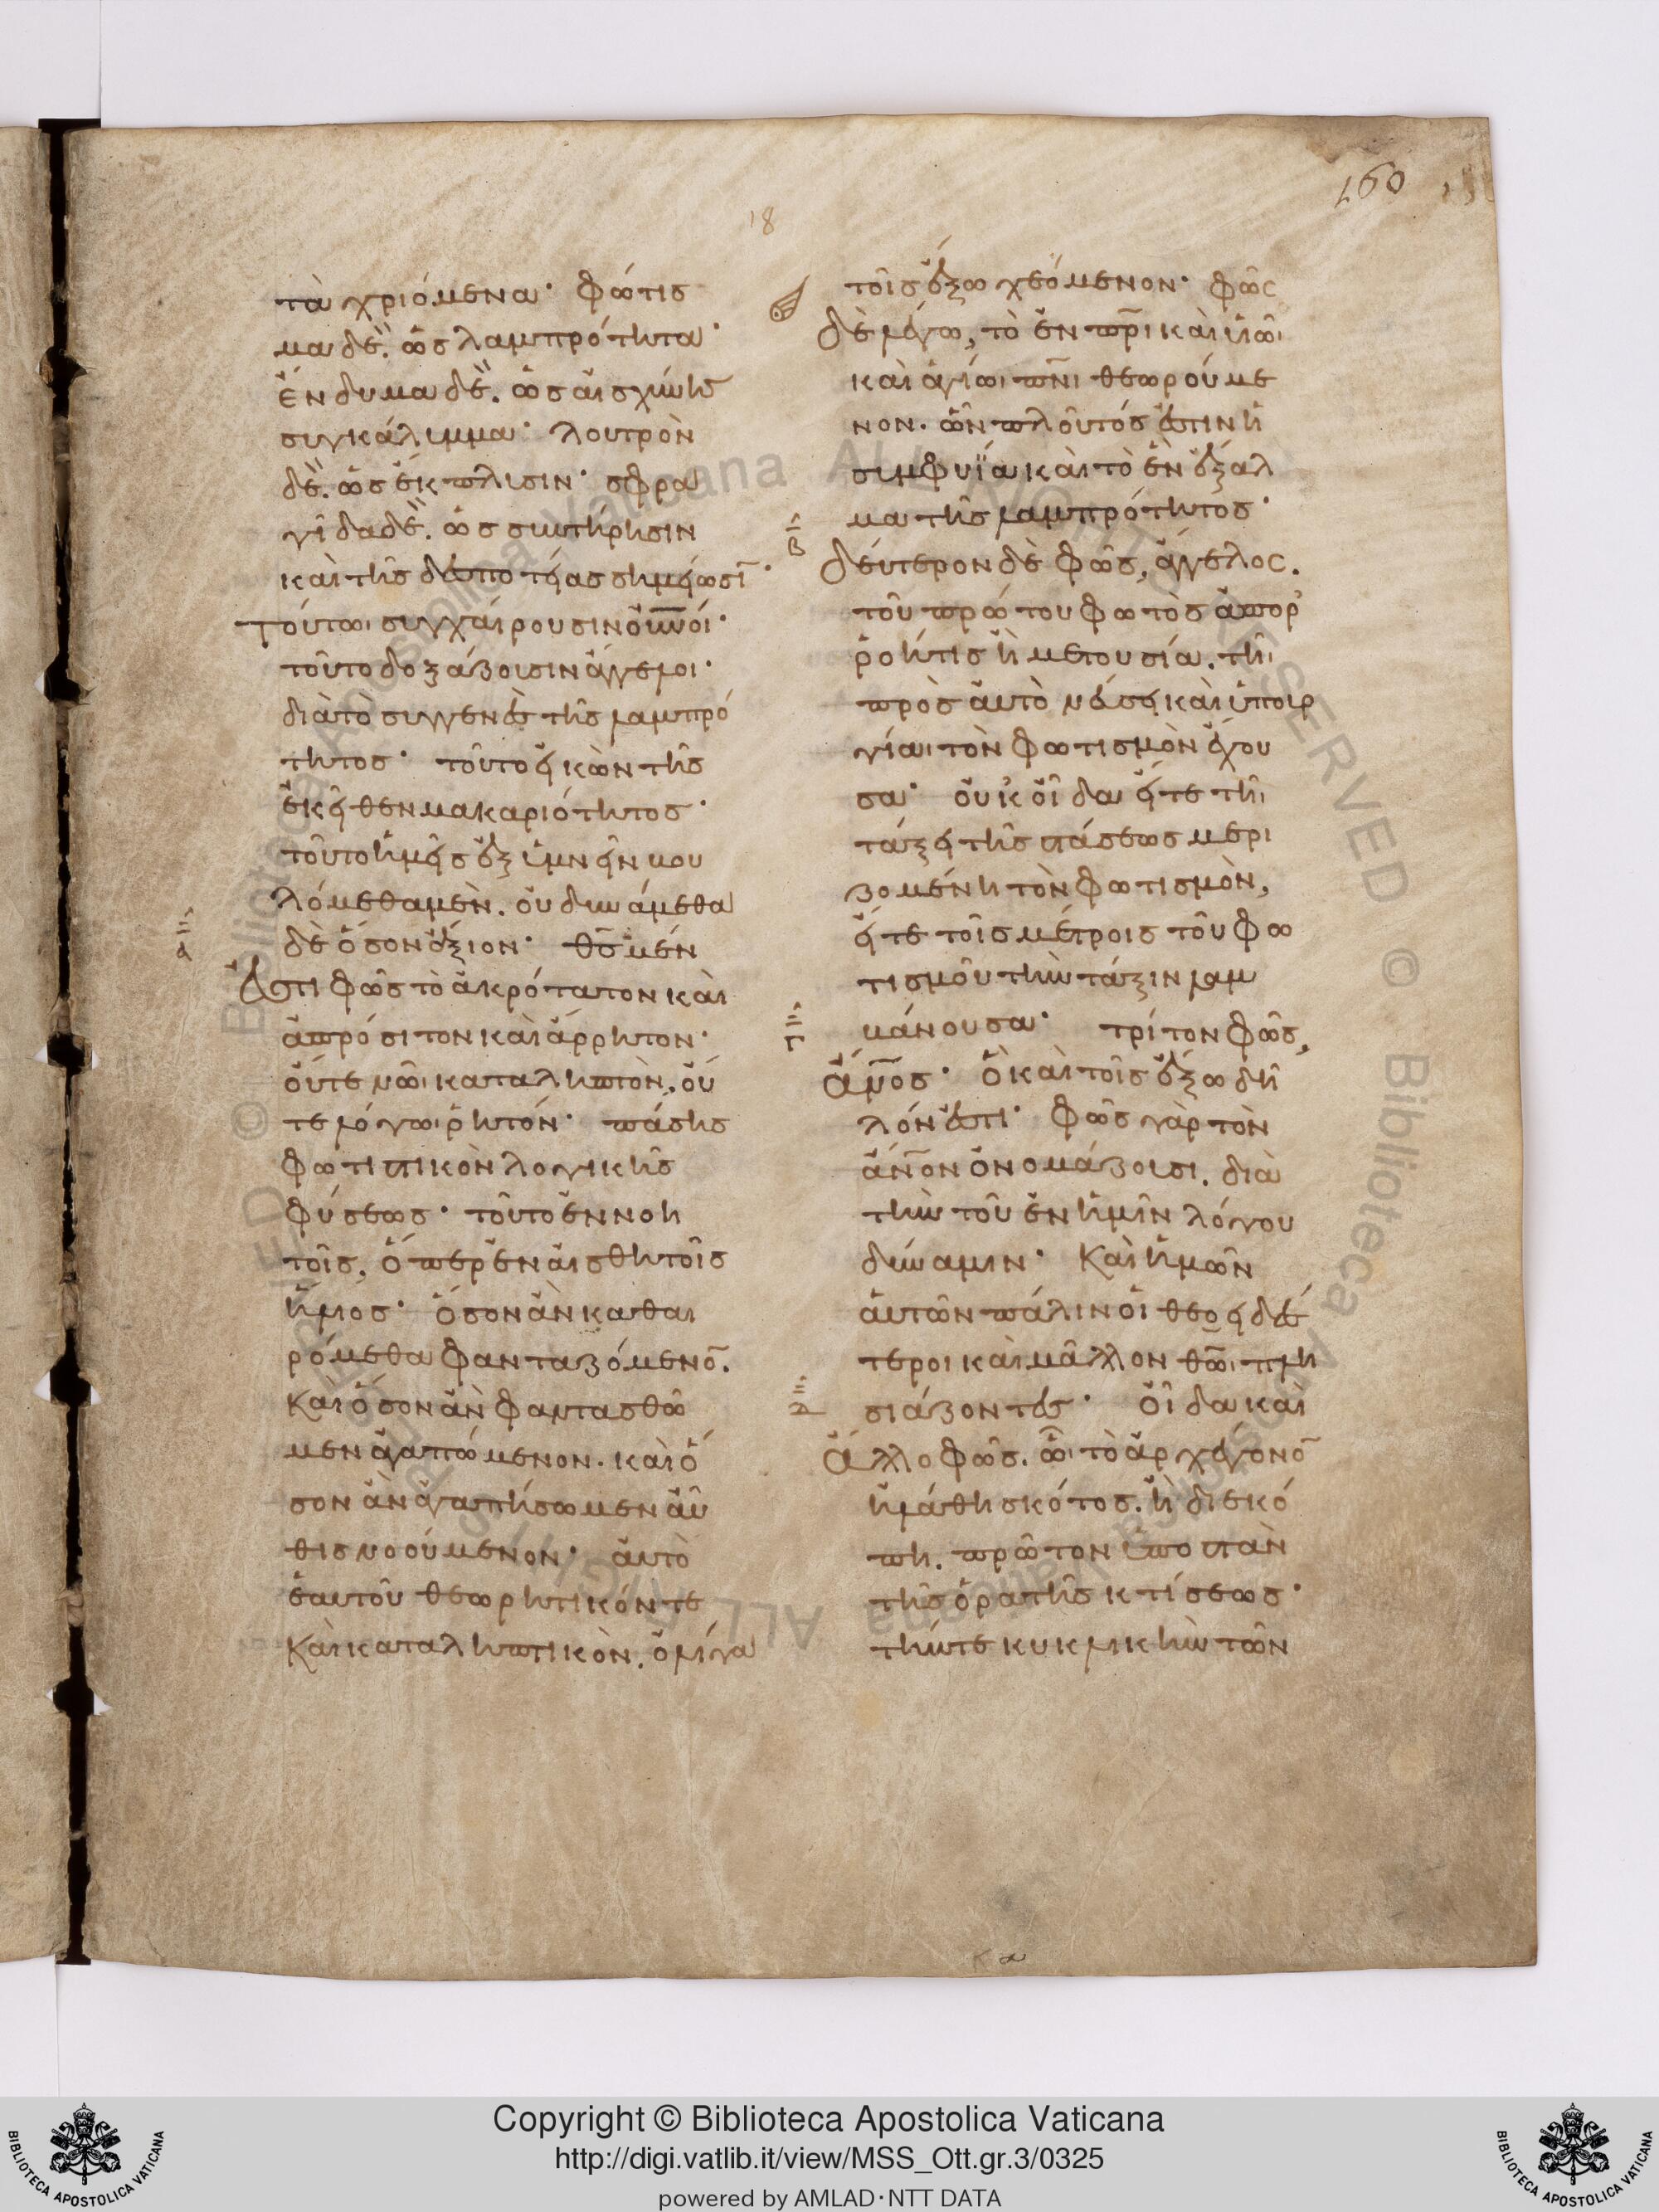 160
18
τὰ χριόμενα· φώτισ
μα δὲ. ὡς λαμπρότητα·
ἔνδυμα δὲ. ὡς αἰσχύνης
συγκάλυμμα· λουτρὸν
δὲ. ὡς ἔκπλυσιν· σφρα
γῖδα δὲ. ὡς συντήρησιν
καὶ τῆς δεσποτείας σημείωσῖ·
Τούτωι συγχαίρουσιν οὐ̅ν̅οί·
τοῦτο δοξάζουσιν ἄγγελοι·
διὰ τὸ συγγενὲς τῆς λαμπρό
τητος· τοῦτο εἰκὼν τῆς
ἐκεῖθεν μακαριότητος·
τοῦτο ἡμεῖς ἐξυμνεῖν βου
λόμεθα μὲν. οὐ δυνάμεθα
δὲ ὅσον ἄξιον· θ̅ς̅ μέν
Α
ἐστι φῶς τὸ ἀκρότατον καὶ
ἀπρόσιτον καὶ ἄρρητον·
οὔτε νῶι καταληπτὸν, οὔ
τε λόγωι ῥητόν· πάσης
φωτιστικὸν λογικῆς
φύσεως· τοῦτο ἐν νοη
τοῖς, ὅπερ ἐν αἰσθητοῖς
ἥλιος· ὅσον ἂν καθαι
ρόμεθα φανταζόμενο̅.
καὶ ὅσον ἂν φαντασθῶ
μεν ἀγαπώμενον. καὶ ὅ
σον ἂν ἀγαπήσωμεν αὖ
θις νοούμενον· αὐτὸ
ἑαυτοῦ θεωρητικόν τε
καὶ καταληπτικὸν. ὀλίγα
τοῖς ἔξω χεόμενον· φῶς
δὲ λέγω, τὸ ἐν π̅ρ̅ι̅ καὶ υἱῶι
καὶ ἁγίωι π̅ν̅ι̅ θεωρούμε
νον. ὧν πλοῦτός ἐστιν ἡ
συμφυΐα καὶ τὸ ἓν ἔξαλ
μα τῆς λαμπρότητος·
Β
δεύτερον δὲ φῶς, ἄγγελος.
τοῦ πρώτου φωτὸς ἀπορ
ροή τις ἢ μετουσία. τῆι
πρὸς αὐτὸ νεύσει καὶ ὑπουρ
γίαι τὸν φωτισμὸν ἔχου
σα· οὐκ οἶδα εἴτε τῆι
τάξει τῆς στάσεως μερι
ζομένη τὸν φωτισμὸν,
εἴτε τοῖς μέτροις τοῦ φω
τισμοῦ τὴν τάξιν λαμ
Γ
βάνουσα· τρίτον φῶς,
ἄ̅ν̅ο̅ς̅· ὃ καὶ τοῖς ἔξω δῆ
λόν ἐστι· φῶς γὰρ τὸν
ἄ̅ν̅ο̅ν̅ ὀνομάζουσι. διὰ
τὴν τοῦ ἐν ἡμῖν λόγου
δύναμιν· Καὶ ἡμῶν
αὐτῶν πάλιν οἱ θεοειδέσ
τεροι καὶ μᾶλλον θ̅ῶ̅ι πλη
Δ
σιάζοντες· οἶδα καὶ
ἄλλο φῶς. ὧι τὸ ἀρχέγονο̅
ἠλάθη σκότος. ἢ διεκό
πη. πρῶτον ὑποστὰν
τῆς ὁρατῆς κτίσεως·
τήν τε κυκλικὴν τῶν
κα
Copyright © Biblioteca Apostolica Vaticana
http://digi.vatlib.it/view/MSS_Ott.gr.3/0325
powered by AMLAD·NTT DATA
BIBLIOTECA APOSTOLICA VATICANA
BIBLIOTECA APOSTOLICA VATICANA